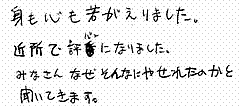 身も心も若がえりました。
近所で評番になりました。
みなさんなぜそんなにやせれたのかと
聞いてきます。